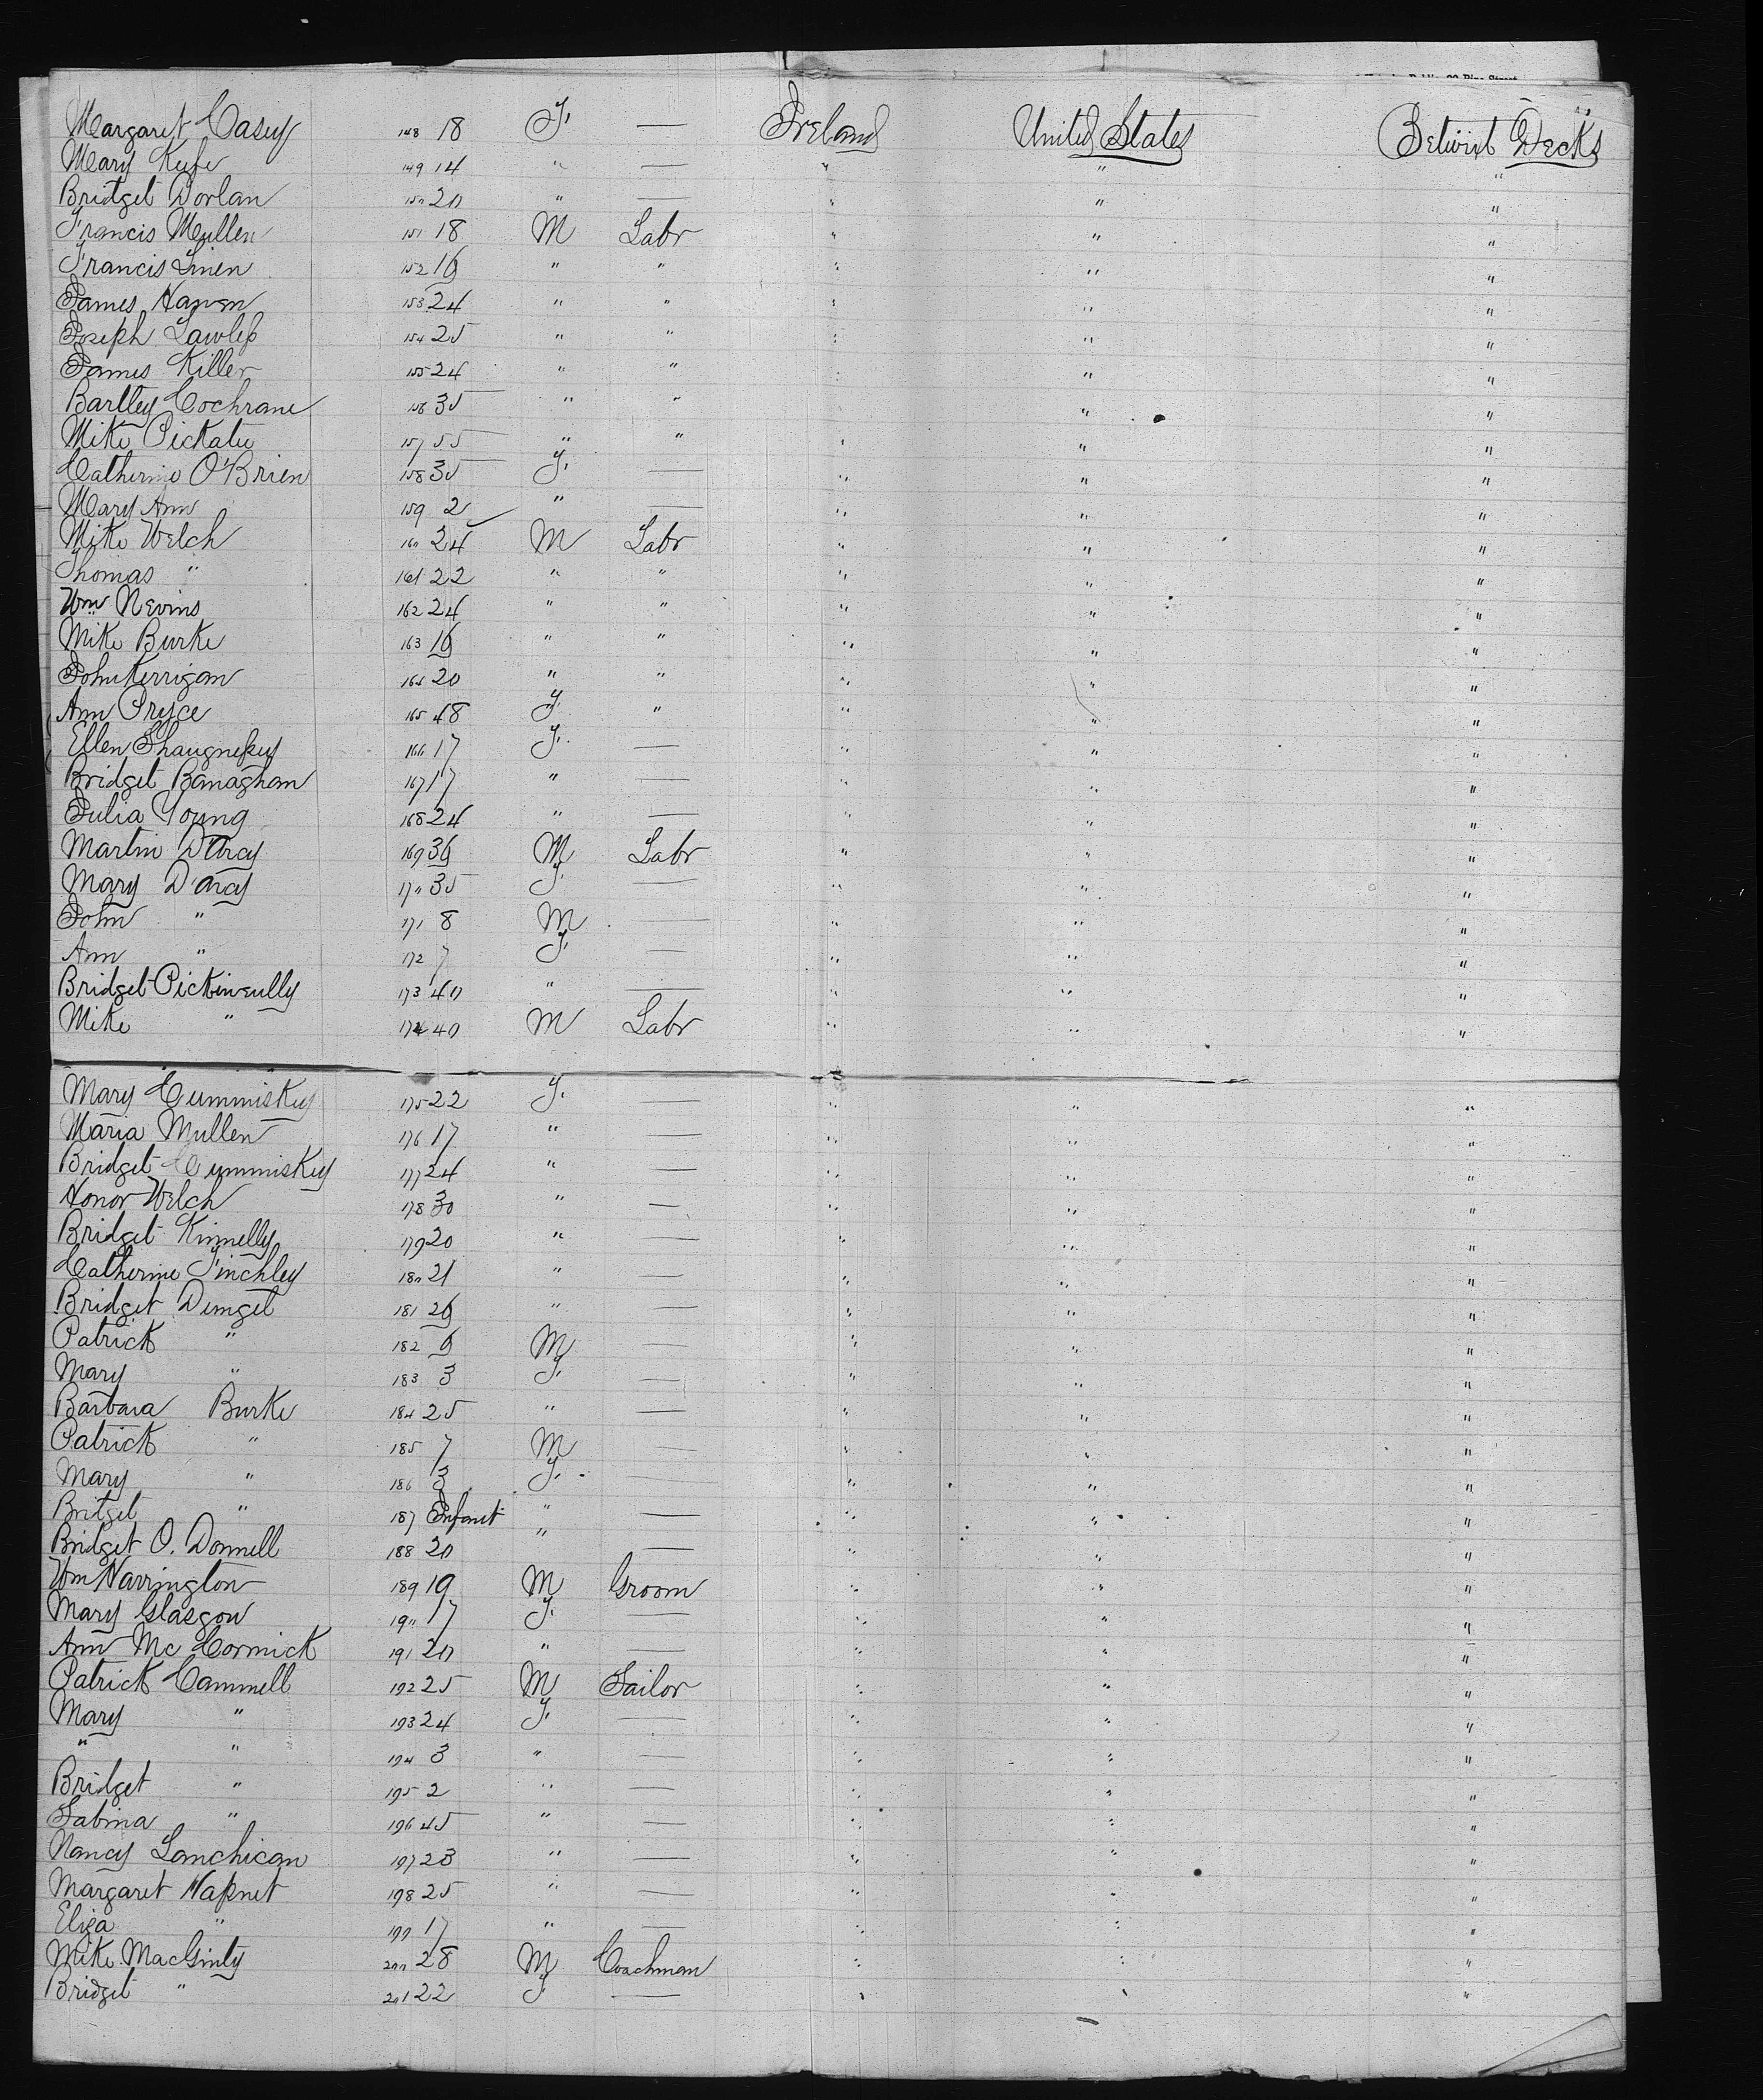 Margaret Casey 148 18 F. — Ireland United States Betwixt Decks
Mary Kufe 149 14 " — " " "
Bridget Dorlan 150 20 " — " " "
Francis Mullen 151 18 M Labr " " "
Francis Linen 152 16 " " " " "
James 153 24 " " " " "
Joseph Lawless 154 25 " " " " "
James Killer 155 24 " " " " "
Bartley Cochrane 156 35 " " " " "
Mike Pickatu 157 55 " " " " "
Catherine O'Brien 158 35 F. — " " "
Mary Ann 159 2 " — " " "
Mike Welch 160 24 M Labr " " "
Thomas " 161 22 " " " " "
Wm Nevins 162 24 " " " " "
Mike Burke 163 16 " " " " "
John Kerrigan 164 20 " " " " "
Ann Pryce 165 48 F. " " " "
Ellen Shaugnessy 166 17 F. — " " "
Bridget Banaghan 167 17 " — " " "
Julia Young 168 24 " — " " "
Martin D'Arcy 169 36 M Labr " " "
Mary D'arcy 170 35 F. — " " "
John " 171 8 M — " " "
Ann " 172 7 F. — " " "
Bridget 173 40 " — " " "
Mike " 174 40 M Labr " " "
Mary Cummiskey 175 22 F. — " " "
Maria Mullen 176 17 " — " " "
Bridget Cummiskey 177 24 " — " " "
Honor Welch 178 30 " — " " "
Bridget Kinnelly 179 20 " — " " "
Catherine Finchley 180 21 " — " " "
Bridget Demget 181 26 " — " " "
Patrick " 182 6 M — " " "
Mary " 183 3 F. — " " "
Barbara Burke 184 25 " — " " "
Patrick " 185 7 M — " " "
Mary " 186 3 F. — " " "
Bridget " 187 Infant " — " " "
Bridget O. Donnell 188 20 " — " " "
Wm Harrington 189 19 M Groom " " "
Mary Glasgow 190 17 F. — " " "
Ann Mc Cormick 191 20 " — " " "
Patrick Cammell 192 25 M Sailor " " "
Mary " 193 24 F. — " " "
" " 194 3 " — " " "
Bridget " 195 2 " — " " "
Sabina " 196 45 " — " " "
Nancy Lanchican 197 23 " — " " "
Margaret Hassnet 198 25 " — " " "
Eliza " 199 17 " — " " "
Mike MacGinty 200 28 M Coachman " " "
Bridget " 201 22 F. — " " "